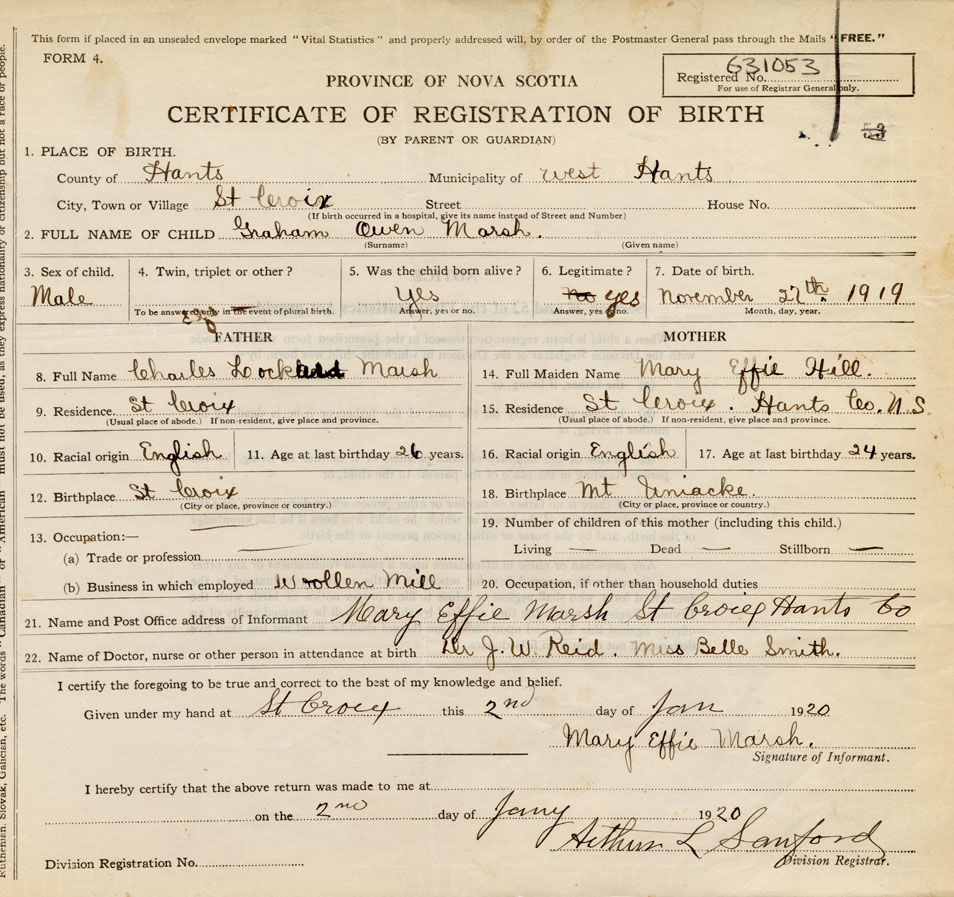 This form if placed in an unsealed envelope marked "Vital Statistics" and properly addressed will, by order of the Postmaster General pass through the Mails "FREE."
FORM 4.
631053
Registered No.
For use of Registrar General only.
PROVINCE OF NOVA SCOTIA
CERTIFICATE OF REGISTRATION OF BIRTH
53
(BY PARENT OR GUARDIAN)
1. PLACE OF BIRTH.
County of Hants Municipality of west Hants
City, Town or Village St Croix Street House No.
(If birth occurred in a hospital, give its name instead of Street and Number)
2. FULL NAME OF CHILD Graham Owen Marsh.
(Surname) (Given name)
3. Sex of child. 4. Twin, triplet or other? 5. Was the child born alive? 6. Legitimate? 7. Date of birth.
Male Yes no yes November 27th. 1919
To be answered only in the event of plural birth. Answer, yes or no. Answer, yes or no. Month, day, year.
FATHER MOTHER
8. Full Name Charles Lock Marsh 14. Full Maiden Name Mary Effie Hill.
9. Residence. St Croix 15. Residence St Croix. Hants Co. N.S.
(Usual place of abode.) If non-resident, give place and province. (Usual place of abode.) If non-resident, give place and province.
10. Racial origin English 11. Age at last birthday 26 years. 16. Racial origin English 17. Age at last birthday 24 years.
12. Birthplace St Croix 18. Birthplace Mt Uniacke.
(City or place, province or country.) (City or place, province or country.)
19. Number of children of this mother (including this child.)
13. Occupation:—
(a) Trade or profession Living — Dead — Stillborn —
(b) Business in which employed Woollen Mill 20. Occupation, if other than household duties
21. Name and Post Office address of Informant Mary Effie Marsh St Croix Hants Co
22. Name of Doctor, nurse or other person in attendance at birth Dr J. W. Reid. Miss Belle Smith.
I certify the foregoing to be true and correct to the best of my knowledge and belief.
Given under my hand at St Croix this 2nd day of Jan 1920
Mary Effie Marsh.
Signature of Informant.
I hereby certify that the above return was made to me at
on the 2nd day of Jany 1920
Arthur L Sanford
Division Registrar.
Division Registration No.
Ruthenian, Slovak, Galician, etc. The words "Canadian" or "American" must not be used, as they express nationality or citizenship but not a race or people.